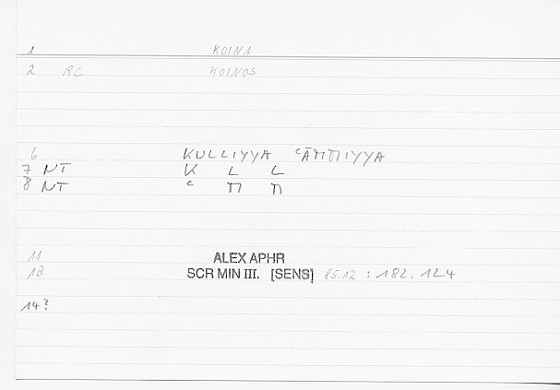 1 KOINA
2 RC KOINOS
6 KULLIYYA ᶜĀMMIYYA
7 NT K L L
8 NT ᶜ M M
11 ALEX APHR
12 SCR MIN III. [SENS] 85.12 : 182.124
14?